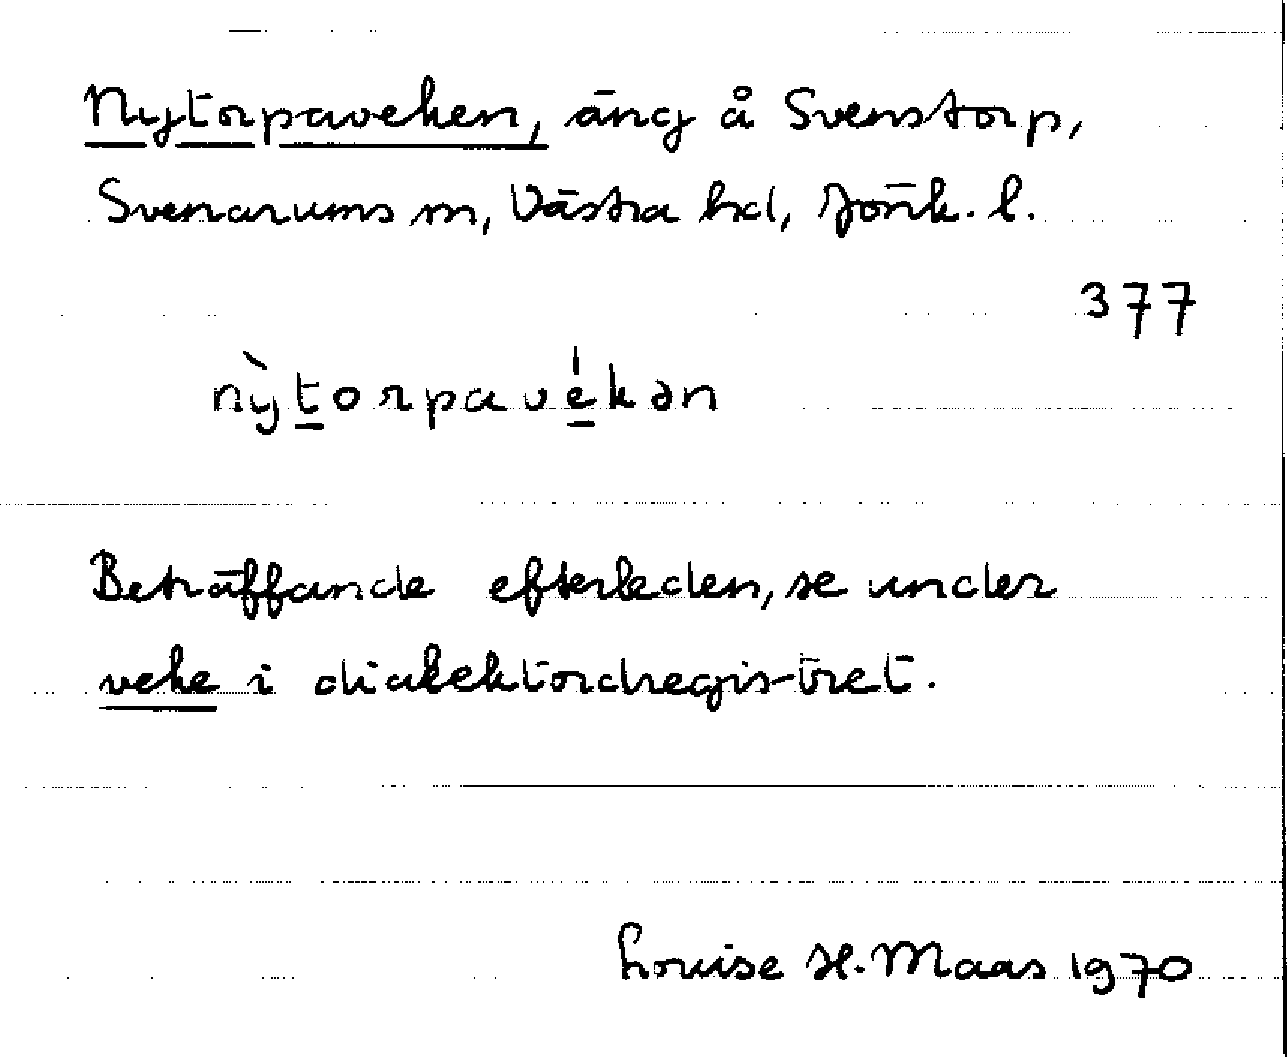 Nytorpaveken, äng å Svenstorp,
Svenarums sn, Västra hd, Jönk. l.
377
nỳtorpavékən
Beträffande efterleden, se under
veke i dialektordregistret.
Louise H. Maas 1970